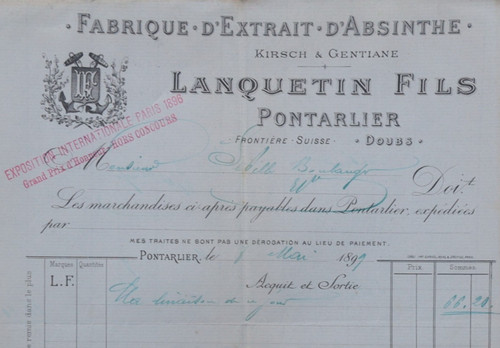 FABRIQUE · D'EXTRAIT · D'ABSINTHE ·
KIRSCH & GENTIANE
LANQUETIN FILS
PONTARLIER
FRONTIÈRE · SUISSE · DOUBS ·
LF
EXPOSITION INTERNATIONALE PARIS 1896
Grand Prix d'Honneur · HORS CONCOURS
Monsieur
Doit
Les marchandises ci après payables dans Pontarlier, expédiées
par
MES TRAITES NE SONT PAS UNE DÉROGATION AU LIEU DE PAIEMENT.
PONTARLIER, le 8 Mai 1899
Marques Quantités Acquit et Sortie Prix Sommes
L.F. 66.20